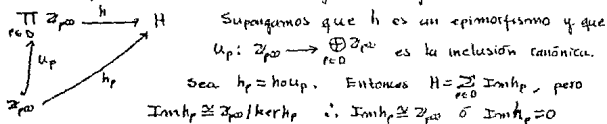 ∏_{p∈D} Z_{p^∞} —h→ H Supongamos que h es un epimorfismo y que
u_p u_p: Z_{p^∞} → ⊕_{p∈D} Z_{p^∞} es la inclusión canónica.
Z_{p^∞} h_p Sea h_p = h∘u_p. Entonces H = Σ_{p∈D} Im h_p, pero
Im h_p ≅ Z_{p^∞}/ker h_p ∴ Im h_p ≅ Z_{p^∞} ó Im h_p = 0